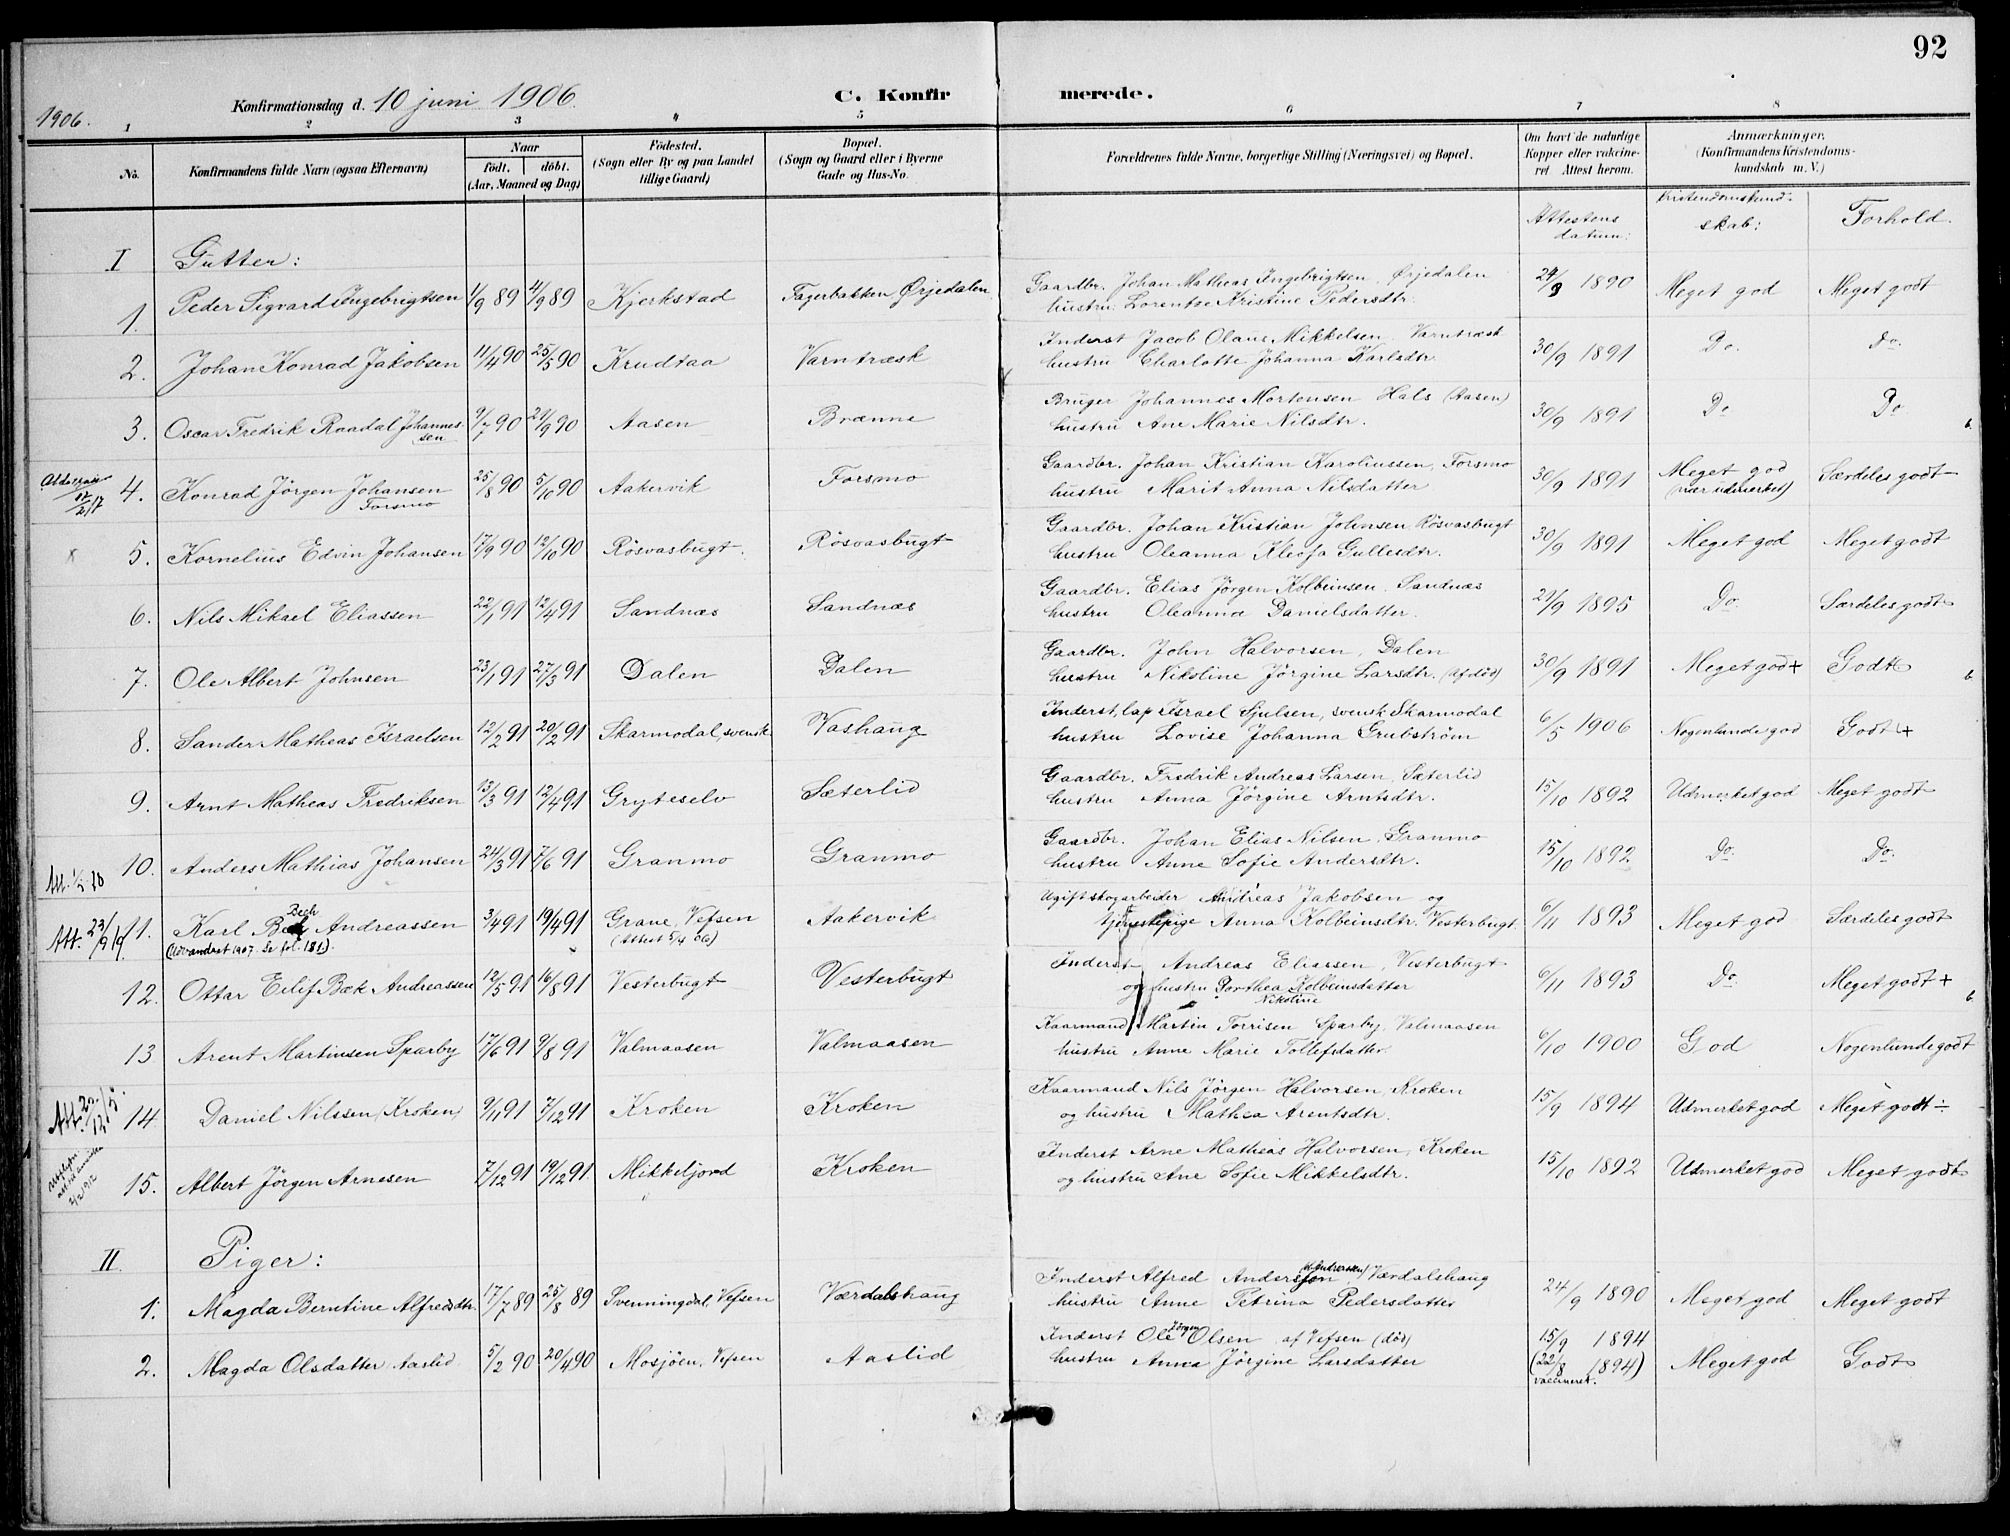 92
1906.
Konfirmationsdag d. 10 juni 1906.
C. Konfirmerede.
1 2 3 4 5 6 7 8
No.
Konfirmandens fulde Navn (ogsaa Efternavn)
Naar
født. døbt.
(Aar, Maaned og Dag)
Fødested.
(Sogn eller By og paa Landet
tillige Gaard)
Bopæl.
(Sogn og Gaard eller i Byerne
Gade og Hus-No.
Forældrenes fulde Navne, borgerlige Stilling (Næringsvei) og Bopæl.
Om havt de naturlige
Kopper eller vaccine-
ret. Attest herom.
Anmærkninger.
(Konfirmandens Kristendoms-
kundskab m. V.)
Attestens
datum:
Kristendomskund-
skab:
Forhold.
I Gutter:
1 Peder Sigvard Ingebrigtsen 1/9 89 4/9 89 Kjerkstad Fagerbakken, Ørjedalen Gaardbr. Johan Mathias Ingebrigtsen, Ørjedalen 24/9 1890 Meget god Meget godt
hustru: Lorentse Kristine Pedersdtr.
2. Johan Konrad Jakobsen 11/4 90 25/5 90 Krudtaa Varntræsk Inderst Jacob Olaus Mikkelsen Varntræsk 30/9 1891 Do. Do.
hustru Charlotte Johanna Karlsdtr.
3. Oscar Fredrik Raadal Johannes-
sen 9/7 90 21/9 90 Aasen Brænne Bruger Johannes Mortensen Hals (Aasen) 30/9 1891 Do Do
hustru Ane Marie Nilsdtr.
4. Konrad Jörgen Johansen 25/8 90 5/10 90 Aakervik Forsmo Gaardbr. Johan Kristian Karoliussen, Forsmo 30/9 1891 Meget god Særdeles godt
Forsmo hustru Marit Anna Nilsdatter (nær udmerket)
5. Kornelius Edvin Johansen 17/9 90 12/10 90 Rösvasbugt. Rösvasbugt Gaardbr. Johan Kristian Johnsen Rösvasbugt 30/9 1891 Meget god Meget godt
hustru Oleanna Kleofa Gullesdtr.
6. Nils Mikael Eliassen 22/1 91 12/4 91 Sandnæs Sandnæs Gaardbr. Elias Jörgen Kolbeinsen. Sandnæs 21/9 1895 Do. Særdeles godt
hustru Oleanna Danielsdatter.
7. Ole Albert Johnsen 23/1 91 27/3 91 Dalen Dalen Gaardbr. John Halvorsen, Dalen 30/9 1891 Meget god + Godt
hustru Nikoline Jörgine Larsdtr. (afdöd)
8. Sander Matheas Israelsen 12/2 91 20/2 91 Skarmodal, svensk Vashaug Inderst, lap Israel Sjulsen, svensk Skarmodal 6/5 1906 Nogenlunde god Godt +
hustru Lovise Johanna Grubström
9. Arnt Matheas Fredriksen 13/3 91 12/4 91 Gryteselv Sæterlid Gaardbr. Fredrik Andreas Larsen, Sæterlid 15/10 1892 Udmerket god Meget godt
hustru Anna Jörgine Arntsdtr.
10. Anders Mathias Johansen 24/3 91 7/6 91 Granmo Granmo Gaardbr. Johan Elias Nilsen, Granmo 15/10 1892 Do. Do.
hustru Anne Sofie Andersdtr.
Att. 23/9 19 11. Karl Bech Andreassen 3/4 91 19/4 91 Grane, Vefsen Aakervik Ugift skogarbeider Andreas Jakobsen og 6/11 1893 Meget god Særdeles godt
(Udvandret 1907. Se fol. 181). (Attest 5/4 06) tjenestepige Anna Kolbeinsdtr. Vesterbugt.
12. Ottar Eilif Bæk Andreassen 12/5 91 16/8 91 Vesterbugt Vesterbugt Inderst Andreas Eliassen, Vesterbugt 6/11 1893 Do. Meget godt +
og hustru Dorthea Kolbeinsdatter
Nikoline
13 Arent Martinsen Sparby 17/6 91 9/8 91 Valmaasen Valmaasen Kaarmand Martin Torrisen Sparby, Valmaasen 6/10 1900 God Nogenlunde godt
hustru Anne Marie Tollefsdatter.
14. Daniel Nilssen (Kroken) 9/11 91 7/12 91 Kroken Kroken Kaarmand Nils Jörgen Halvorsen, Kroken 15/9 1894 Udmerket god Meget godt ÷
og hustru Mathea Arentsdtr.
15. Albert Jörgen Arnesen 7/12 91 19/12 91. Mikkeljord Kroken Inderst Arne Mathias Halvorsen, Kroken 15/10 1892 Udmerket god Meget godt
og hustru Ane Sofie Mikkelsdtr.
II Piger:
1. Magda Berntine Alfredsdtr. 17/7 89 25/8 89 Svenningdal, Vefsen Værdalshaug Inderst Alfred Anderssen, Værdalshaug 24/9 1890 Meget god Meget godt
hustru Anne Petrina Pedersdatter
2. Magda Olsdatter Aaslid 5/2 90 20/4 90 Mosjöen, Vefsen Aaslid Inderst Ole Jörgen Olsen af Vefsen (död) 15/9 1894 Meget god Godt
hustru Anna Jörgine Larsdatter (22/8 1894)
vaccineret.